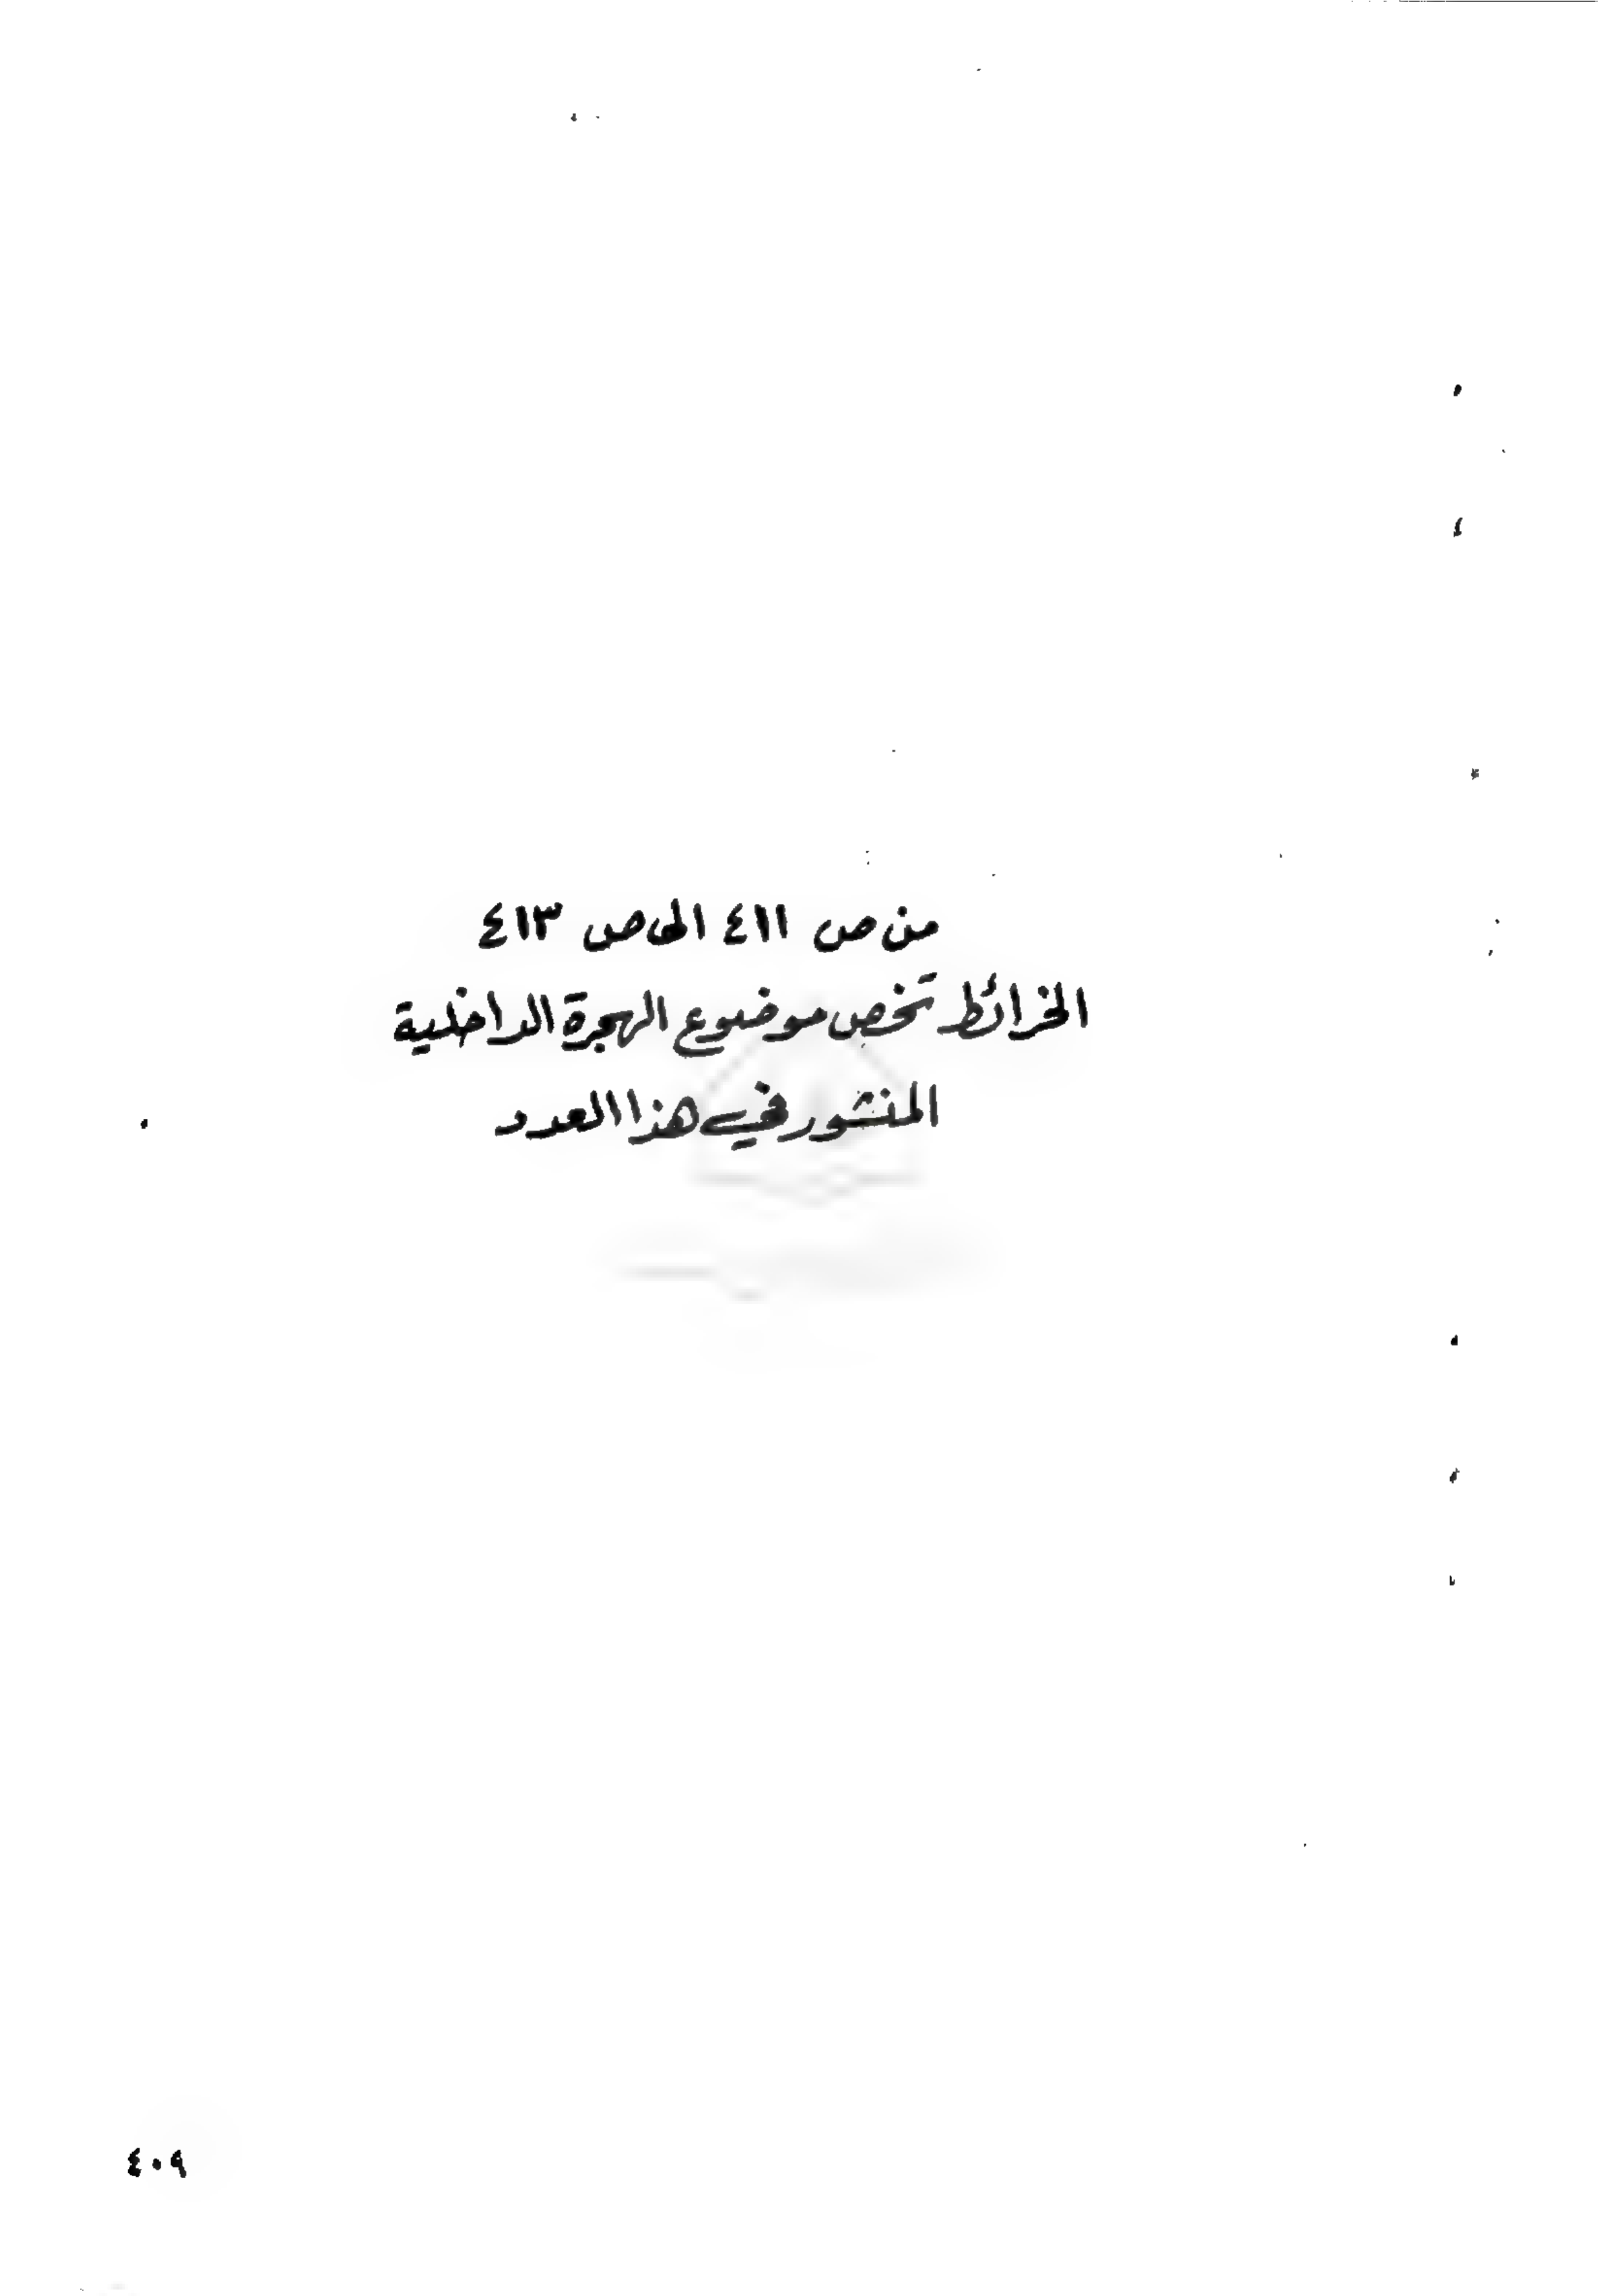 من ص ٤١١ الى ص ٤١٣
الخرائط تخص موضوع الهجرة الداخلية
المنشور في هذا العدد
٤٠٩